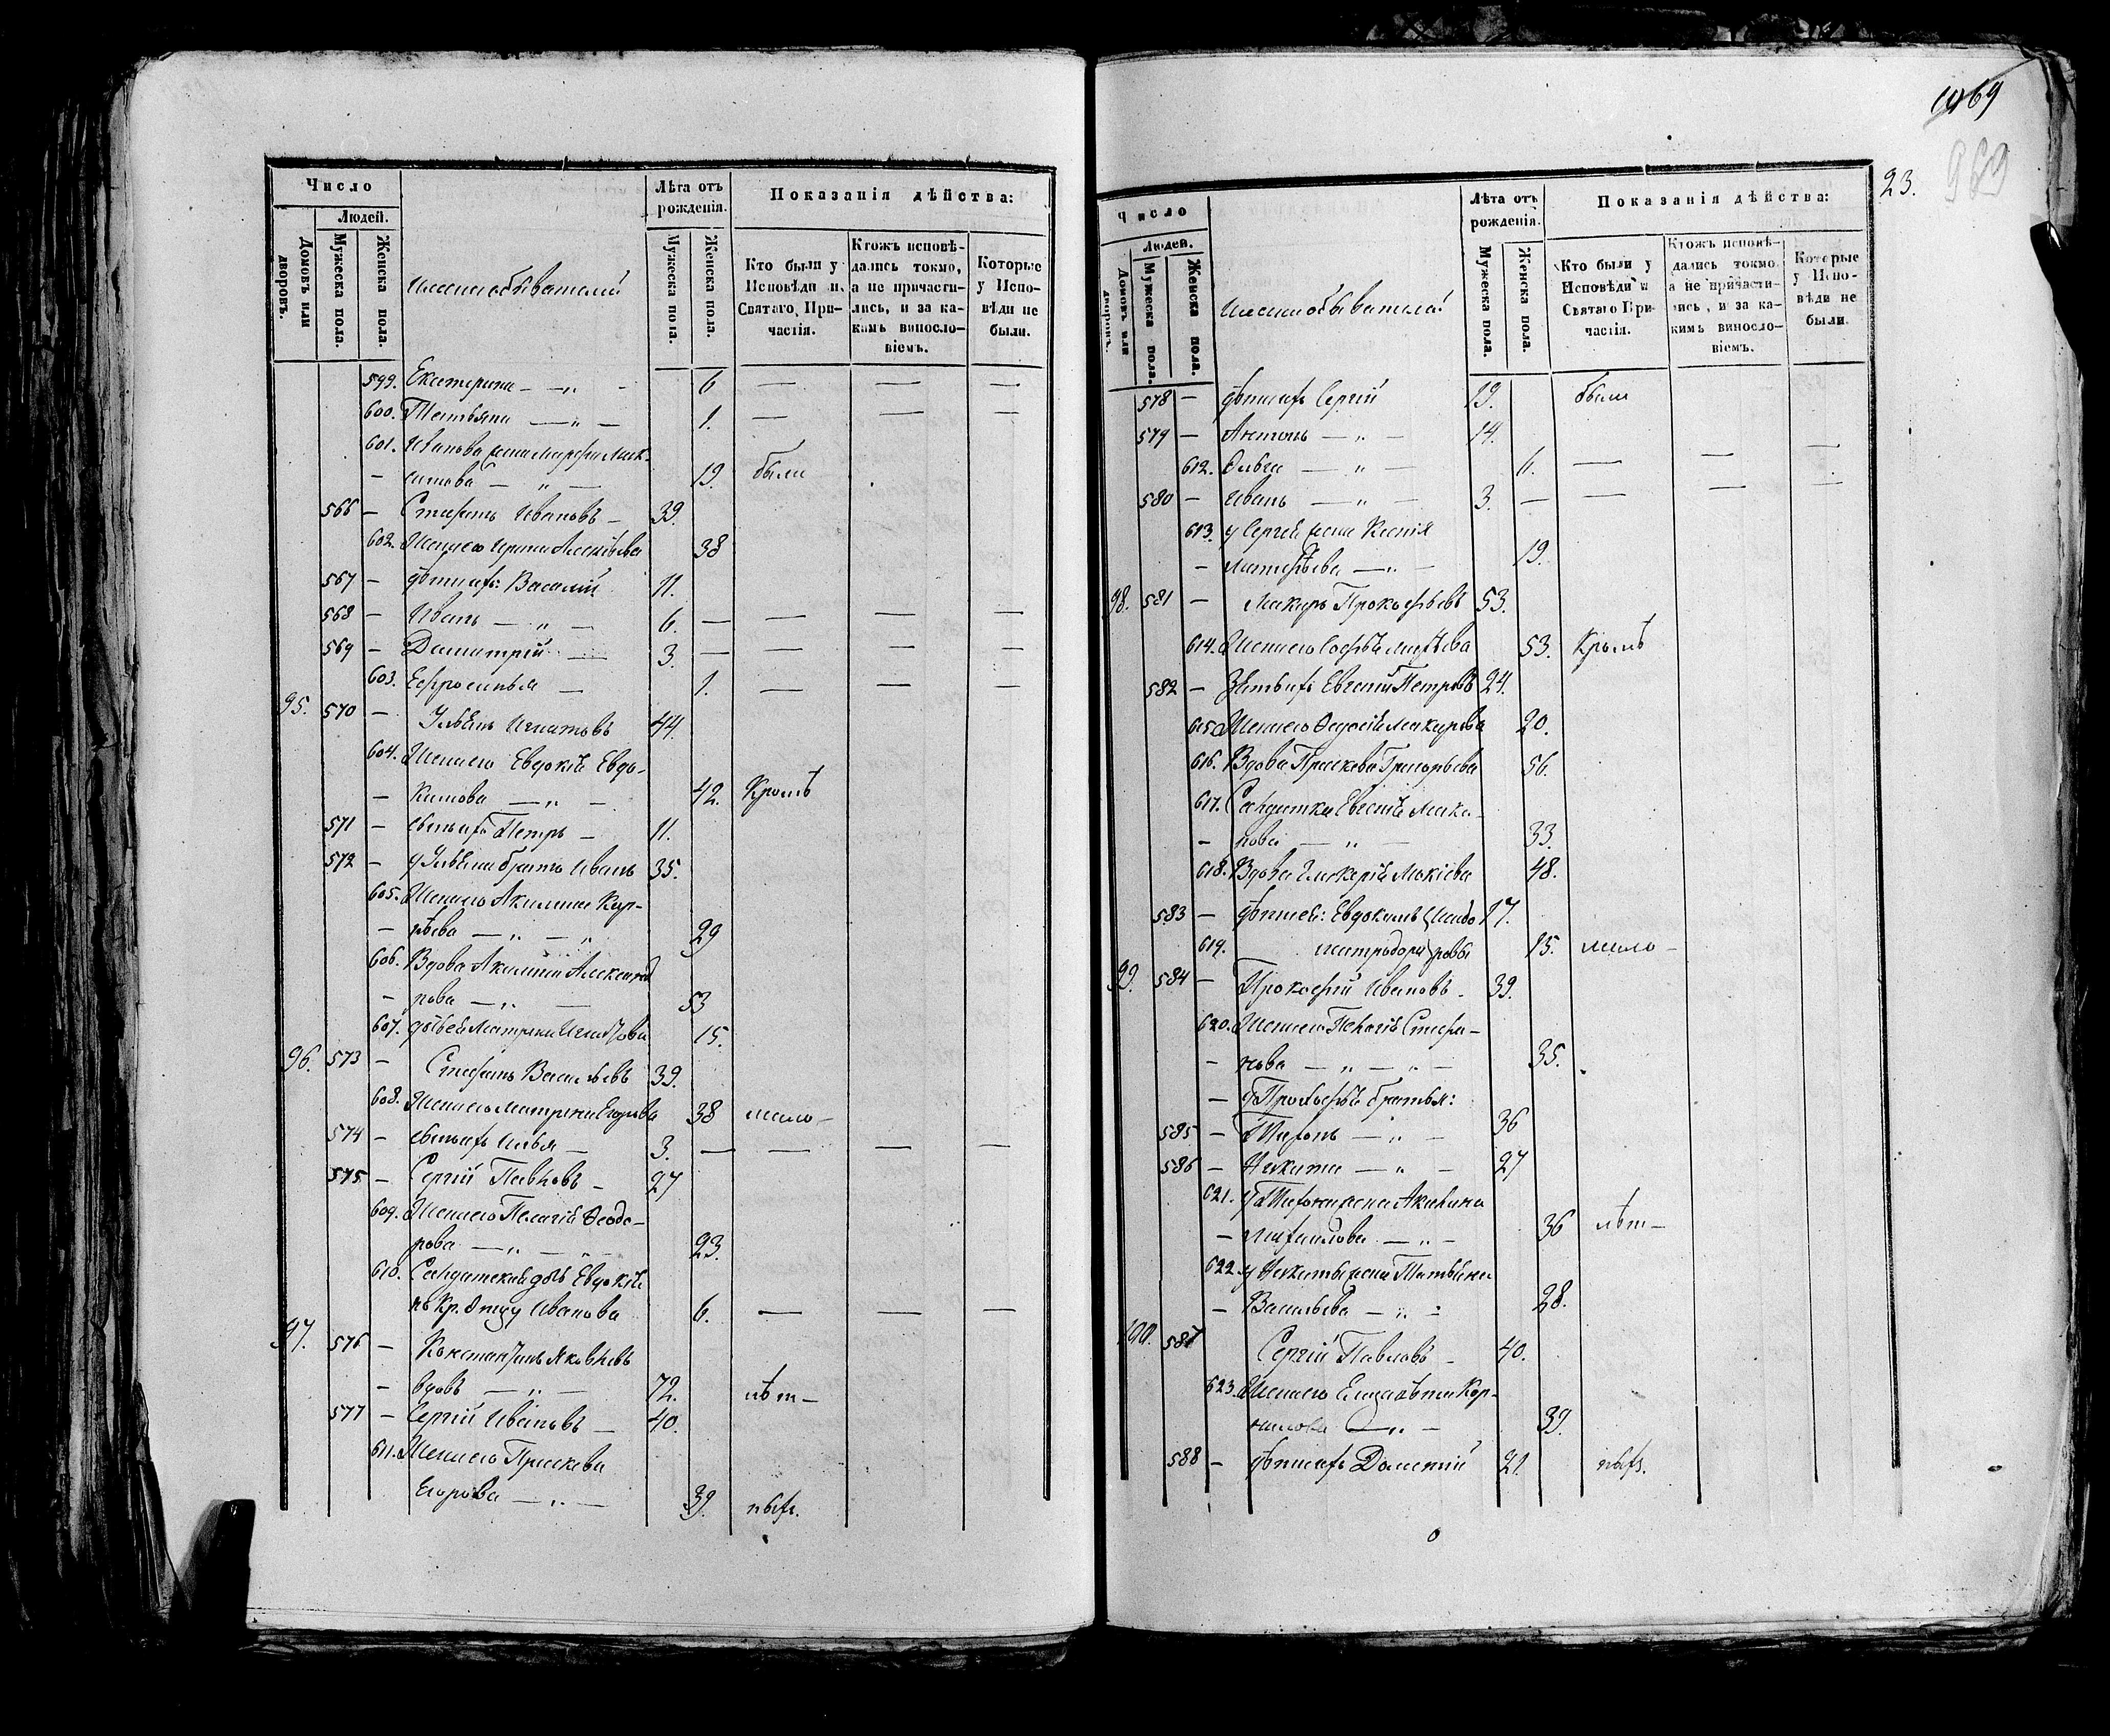 Число
Людей.
Домовъ или дворовъ.
Мужеска пола.
Женска пола.
Имена обывателей
Лѣта отъ рожденія.
Мужеска пола.
Женска пола.
Показанія дѣйства:
Кто были у Исповѣди и Святаго Причастія.
Ктожъ исповѣдались токмо, а не причастились, и за какимъ винословіемъ.
Которые у Исповѣди не были.
599. Екатерина — „ — 6 — — —
600. Татьяна — „ — 1. — — —
601. Иванова жена Марфа Мак-
— симова — „ — 19. были
566 — Стефанъ Ивановъ — 39.
602. Жена его Ирина Алексѣева 38
567 — дѣти ихъ: Василій 11.
568 — Иванъ — „ — 6. — — —
569 — Димитрій — 3. — — —
603. Ефросинья — 1. — — —
95. 570 — Ульянъ Игнатовъ 44.
604. Жена его Евдокія Евдо-
— кимова — „ — 42. Кромѣ
571 — сынъ ихъ Петръ — 11.
572 — у Ульяна братъ Иванъ 35.
605. Жена его Акилина Кар-
— пѣева — „ — „ 29
606. Вдова Акилина Александ
— рова — „ — 53
607. дочь ея Матрена Игнатова 15.
96. 573 — Стефанъ Васильевъ 39.
608. Жена его Матрена Егорова 38 мало —
574 — сынъ ихъ Илья — 3. — — — —
575 — Сергій Павловъ — 27
609. Жена его Пелагія Ѳеодо-
рова — „ — „ 23.
610. Солдатская дочь Евдокія
по Кр. Отцу Иванова 6. — — —
97. 576 — Константинъ Яковлевъ
— вдовъ — „ — 72. лѣт —
577 — Сергій Ивановъ — 40.
611. Жена его Праскева
Егорова — „ — 39.
1969
969
23.
Число
Людей.
Домовъ или дворовъ.
Мужеска пола.
Женска пола.
Имена обывателей
Лѣта отъ рожденія.
Мужеска пола.
Женска пола.
Показанія дѣйства:
Кто были у Исповѣди и Святаго Причастія.
Ктожъ исповѣдались токмо а не причастились, и за какимъ винословіемъ.
Которые у Исповѣди не были.
578 — дѣти ихъ Сергій 19. были
579 — Антонъ — „ — 14.
612. Ольга — „ — 6. — — —
580 — Иванъ — „ — 3. — — — —
613. у Сергея жена Ксенія
— „ — 19.
98. 581 — Макаръ Прокофьевъ 53.
614. Жена его Софья 53. Кромѣ
582 — Зять ихъ Евгеній Петровъ 24.
615. Жена его Ѳедосія Макарова 20.
616. Вдова Праскева Григорьева 56.
617. Солдатка Евгенія Мака-
— рова — „ — 33.
618. Вдова Гликерія Мокіева 48.
583 — дѣти ея: Евдокимъ } Исидо 17.
619. Митродора } ровы 15. мало —
99. 584 — Прокофій Ивановъ — 39.
620. Жена его Пелагія Стефа-
— нова — „ — „ — 35.
— У Прокофья братья:
585 — Тихонъ — „ — 36
586 — Никита — „ — 27
621. у Тихона жена Акилина
— Михайлова — „ — 36 лѣт —
622. у Никиты жена Татьяна
— Васильева — „ — 28.
100. 587 Сергій Павловъ — 40.
623. Жена его Елизавета Кор-
нилова — „ — 39.
588 — дѣти ихъ 21.